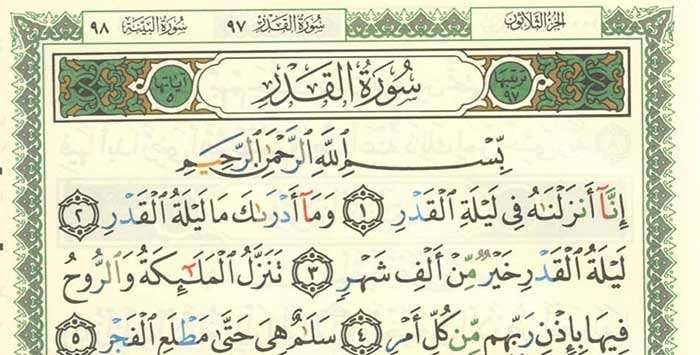 الجزء الثلاثون سورة القدر ٩٧ سورة البينة ٩٨
ترتيبها ٩٧ سُورَةُ الْقَدْرِ آياتها ٥
بِسْمِ ٱللَّهِ ٱلرَّحْمَٰنِ ٱلرَّحِيمِ
إِنَّآ أَنزَلْنَٰهُ فِى لَيْلَةِ ٱلْقَدْرِ ١ وَمَآ أَدْرَىٰكَ مَا لَيْلَةُ ٱلْقَدْرِ ٢
لَيْلَةُ ٱلْقَدْرِ خَيْرٌ مِّنْ أَلْفِ شَهْرٍ ٣ تَنَزَّلُ ٱلْمَلَٰٓئِكَةُ وَٱلرُّوحُ
فِيهَا بِإِذْنِ رَبِّهِم مِّن كُلِّ أَمْرٍ ٤ سَلَٰمٌ هِىَ حَتَّىٰ مَطْلَعِ ٱلْفَجْرِ ٥